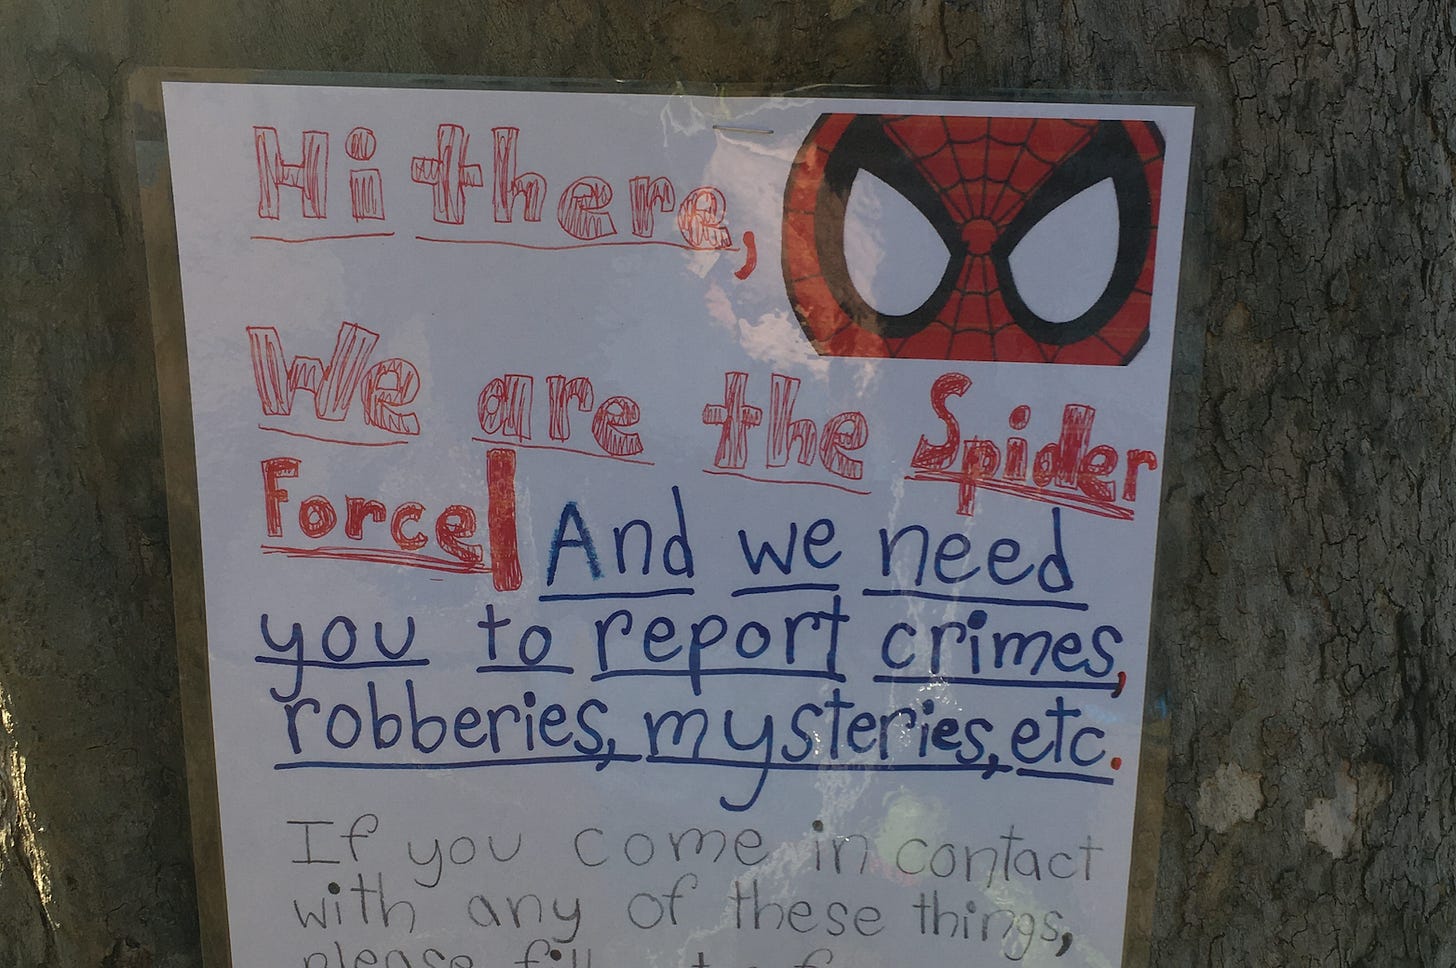 Hi there,
We are the Spider
Force! And we need
you to report crimes,
robberies, mysteries, etc.
If you come in contact
with any of these things,
please fill